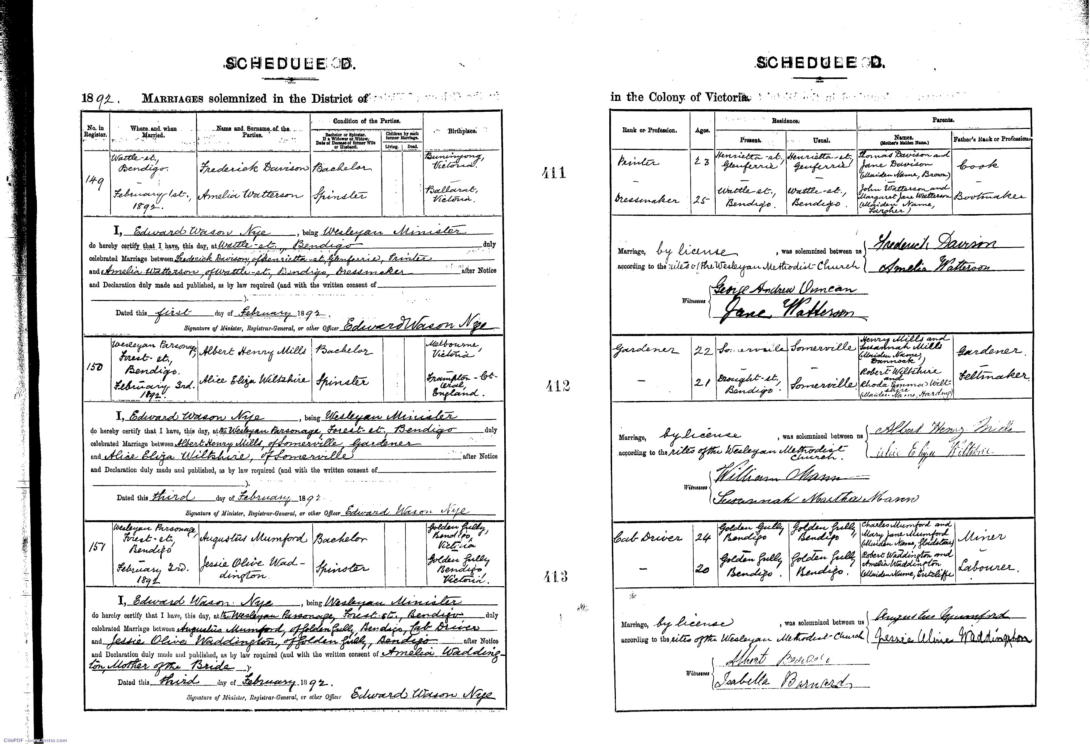 SCHEDULE D.
1892. MARRIAGES solemnized in the District of
No. in Register.
Where and when Married.
Name and Surname of the Parties.
Condition of the Parties.
Bachelor or Spinster. If a Widower or Widow, Date of Decease of former Wife or Husband.
Children by each former Marriage.
Living. Dead.
Birthplace.
149
Wattle-st, Bendigo.
February 1st, 1892.
Frederick Davison Bachelor
Buninyong, Victoria
Amelia Watterson Spinster
Ballarat, Victoria.
I, Edward Wason Nye, being Wesleyan Minister
do hereby certify that I have, this day, at Wattle-st, Bendigo duly
celebrated Marriage between Frederick Davison, of Henrietta-st, Glenferrie, Printer
and Amelia Watterson, of Wattle-st, Bendigo, Dressmaker after Notice
and Declaration duly made and published, as by law required (and with the written consent of
).
Dated this first day of February 1892.
Signature of Minister, Registrar-General, or other Officer Edward Wason Nye
150
Wesleyan Parsonage, Forest-st, Bendigo.
February 3rd. 1892.
Albert Henry Mills Bachelor
Melbourne, Victoria
Alice Eliza Wiltshire Spinster
England.
I, Edward Wason Nye, being Wesleyan Minister
do hereby certify that I have, this day, at the Wesleyan Parsonage, Forest-st, Bendigo duly
celebrated Marriage between Albert Henry Mills, of Somerville, Gardener
and Alice Eliza Wiltshire, of Somerville after Notice
and Declaration duly made and published, as by law required (and with the written consent of
).
Dated this third day of February 1892.
Signature of Minister, Registrar-General, or other Officer Edward Wason Nye
151
Wesleyan Parsonage, Forest-st, Bendigo
February 3rd. 1892
Augustus Mumford Bachelor
Golden Gully, Bendigo, Victoria
Jessie Olive Waddington. Spinster
Golden Gully Bendigo Victoria.
I, Edward Wason Nye, being Wesleyan Minister
do hereby certify that I have, this day, at the Wesleyan Parsonage, Forest-st, Bendigo duly
celebrated Marriage between Augustus Mumford, of Golden Gully, Bendigo, Cab Driver
and Jessie Olive Waddington, of Golden Gully, Bendigo after Notice
and Declaration duly made and published, as by law required (and with the written consent of Amelia Wadding-
ton, Mother of the Bride ).
Dated this third day of February 1892.
Signature of Minister, Registrar-General, or other Officer Edward Wason Nye
411
412
413
SCHEDULE D.
in the Colony of Victoria.
Rank or Profession.
Ages.
Residence.
Present. Usual.
Parents.
Names. (Mother's Maiden Name.)
Father's Rank or Profession
Printer 23 Henrietta-st, Glenferrie Henrietta-st, Glenferrie
Thomas Davison and Jane Davison (Maiden Name, Brown) Cook
Dressmaker 25 Wattle-st, Bendigo. Wattle-st, Bendigo.
John Watterson and Margaret Jane Watterson (Maiden Name, ) Bootmaker
Marriage, by license, was solemnized between us
Frederick Davison
according to the rites of the Wesleyan Methodist Church
Amelia Watterson
Witnesses
George Andrew Duncan
Jane Watterson
Gardener 22 Somerville Somerville
Henry Mills and Susannah Mills (Maiden Name, ) Gardener.
— 21 Drought-st, Bendigo. Somerville
Robert Wiltshire and Rhoda Emma Wiltshire (Maiden Name, Harding) Feltmaker
Marriage, by license, was solemnized between us
Albert Henry Mills
according to the rites of the Wesleyan Methodist Church.
Eliza Wiltshire
Witnesses
William Mann
Susannah Martha Mann
Cab Driver 24 Golden Gully Bendigo Golden Gully Bendigo
Charles Mumford and Mary Jane Mumford (Maiden Name, ) Miner
— 20 Golden Gully Bendigo. Golden Gully Bendigo.
Robert Waddington and Amelia Waddington (Maiden Name, Sutcliffe) Labourer.
Marriage, by license, was solemnized between us
Augustus Mumford
according to the rites of the Wesleyan Methodist Church
Jessie Olive Waddington
Witnesses
Isabella Barnard